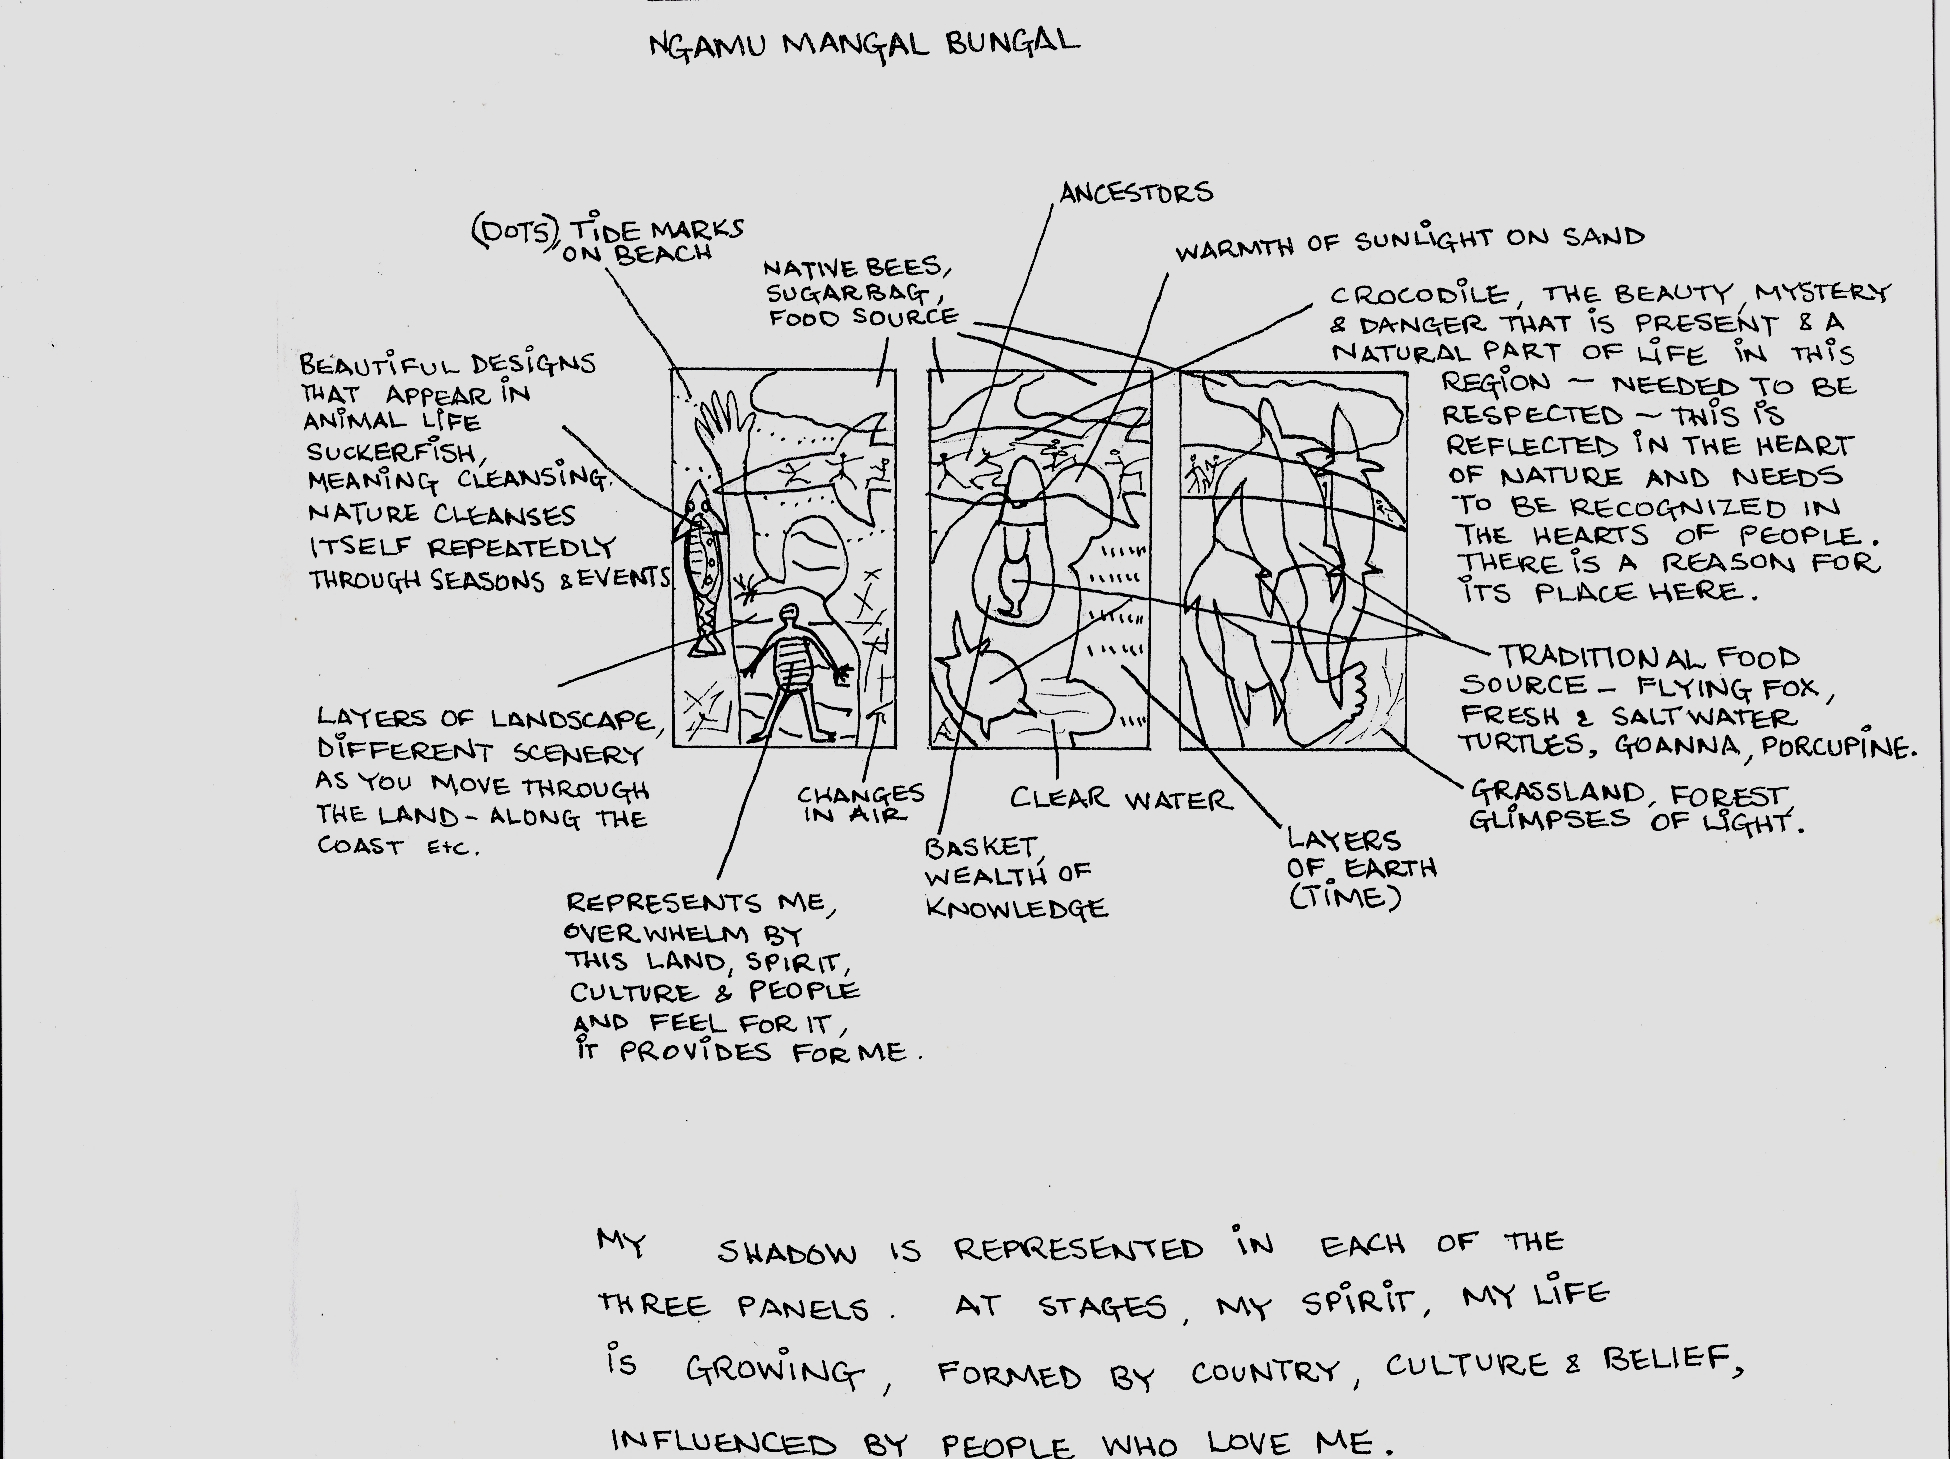 NGAMU MANGAL BUNGAL
ANCESTORS
(DOTS), TIDE MARKS
ON BEACH
WARMTH OF SUNLIGHT ON SAND
NATIVE BEES,
SUGARBAG,
FOOD SOURCE
CROCODILE, THE BEAUTY, MYSTERY
& DANGER THAT IS PRESENT & A
NATURAL PART OF LIFE IN THIS
REGION ~ NEEDED TO BE
RESPECTED ~ THIS IS
REFLECTED IN THE HEART
OF NATURE AND NEEDS
TO BE RECOGNIZED IN
THE HEARTS OF PEOPLE.
THERE IS A REASON FOR
ITS PLACE HERE.
BEAUTIFUL DESIGNS
THAT APPEAR IN
ANIMAL LIFE
SUCKERFISH,
MEANING CLEANSING.
NATURE CLEANSES
ITSELF REPEATEDLY
THROUGH SEASONS & EVENTS
TRADITIONAL FOOD
SOURCE - FLYING FOX,
FRESH & SALT WATER
TURTLES, GOANNA, PORCUPINE.
LAYERS OF LANDSCAPE,
DIFFERENT SCENERY
AS YOU MOVE THROUGH
THE LAND - ALONG THE
COAST Etc.
CHANGES
IN AIR
CLEAR WATER
GRASSLAND, FOREST,
GLIMPSES OF LIGHT.
BASKET,
WEALTH OF
KNOWLEDGE
LAYERS
OF EARTH
(TIME)
REPRESENTS ME,
OVERWHELM BY
THIS LAND, SPIRIT,
CULTURE & PEOPLE
AND FEEL FOR IT,
IT PROVIDES FOR ME.
MY SHADOW IS REPRESENTED IN EACH OF THE
THREE PANELS. AT STAGES, MY SPIRIT, MY LIFE
IS GROWING, FORMED BY COUNTRY, CULTURE & BELIEF,
INFLUENCED BY PEOPLE WHO LOVE ME.